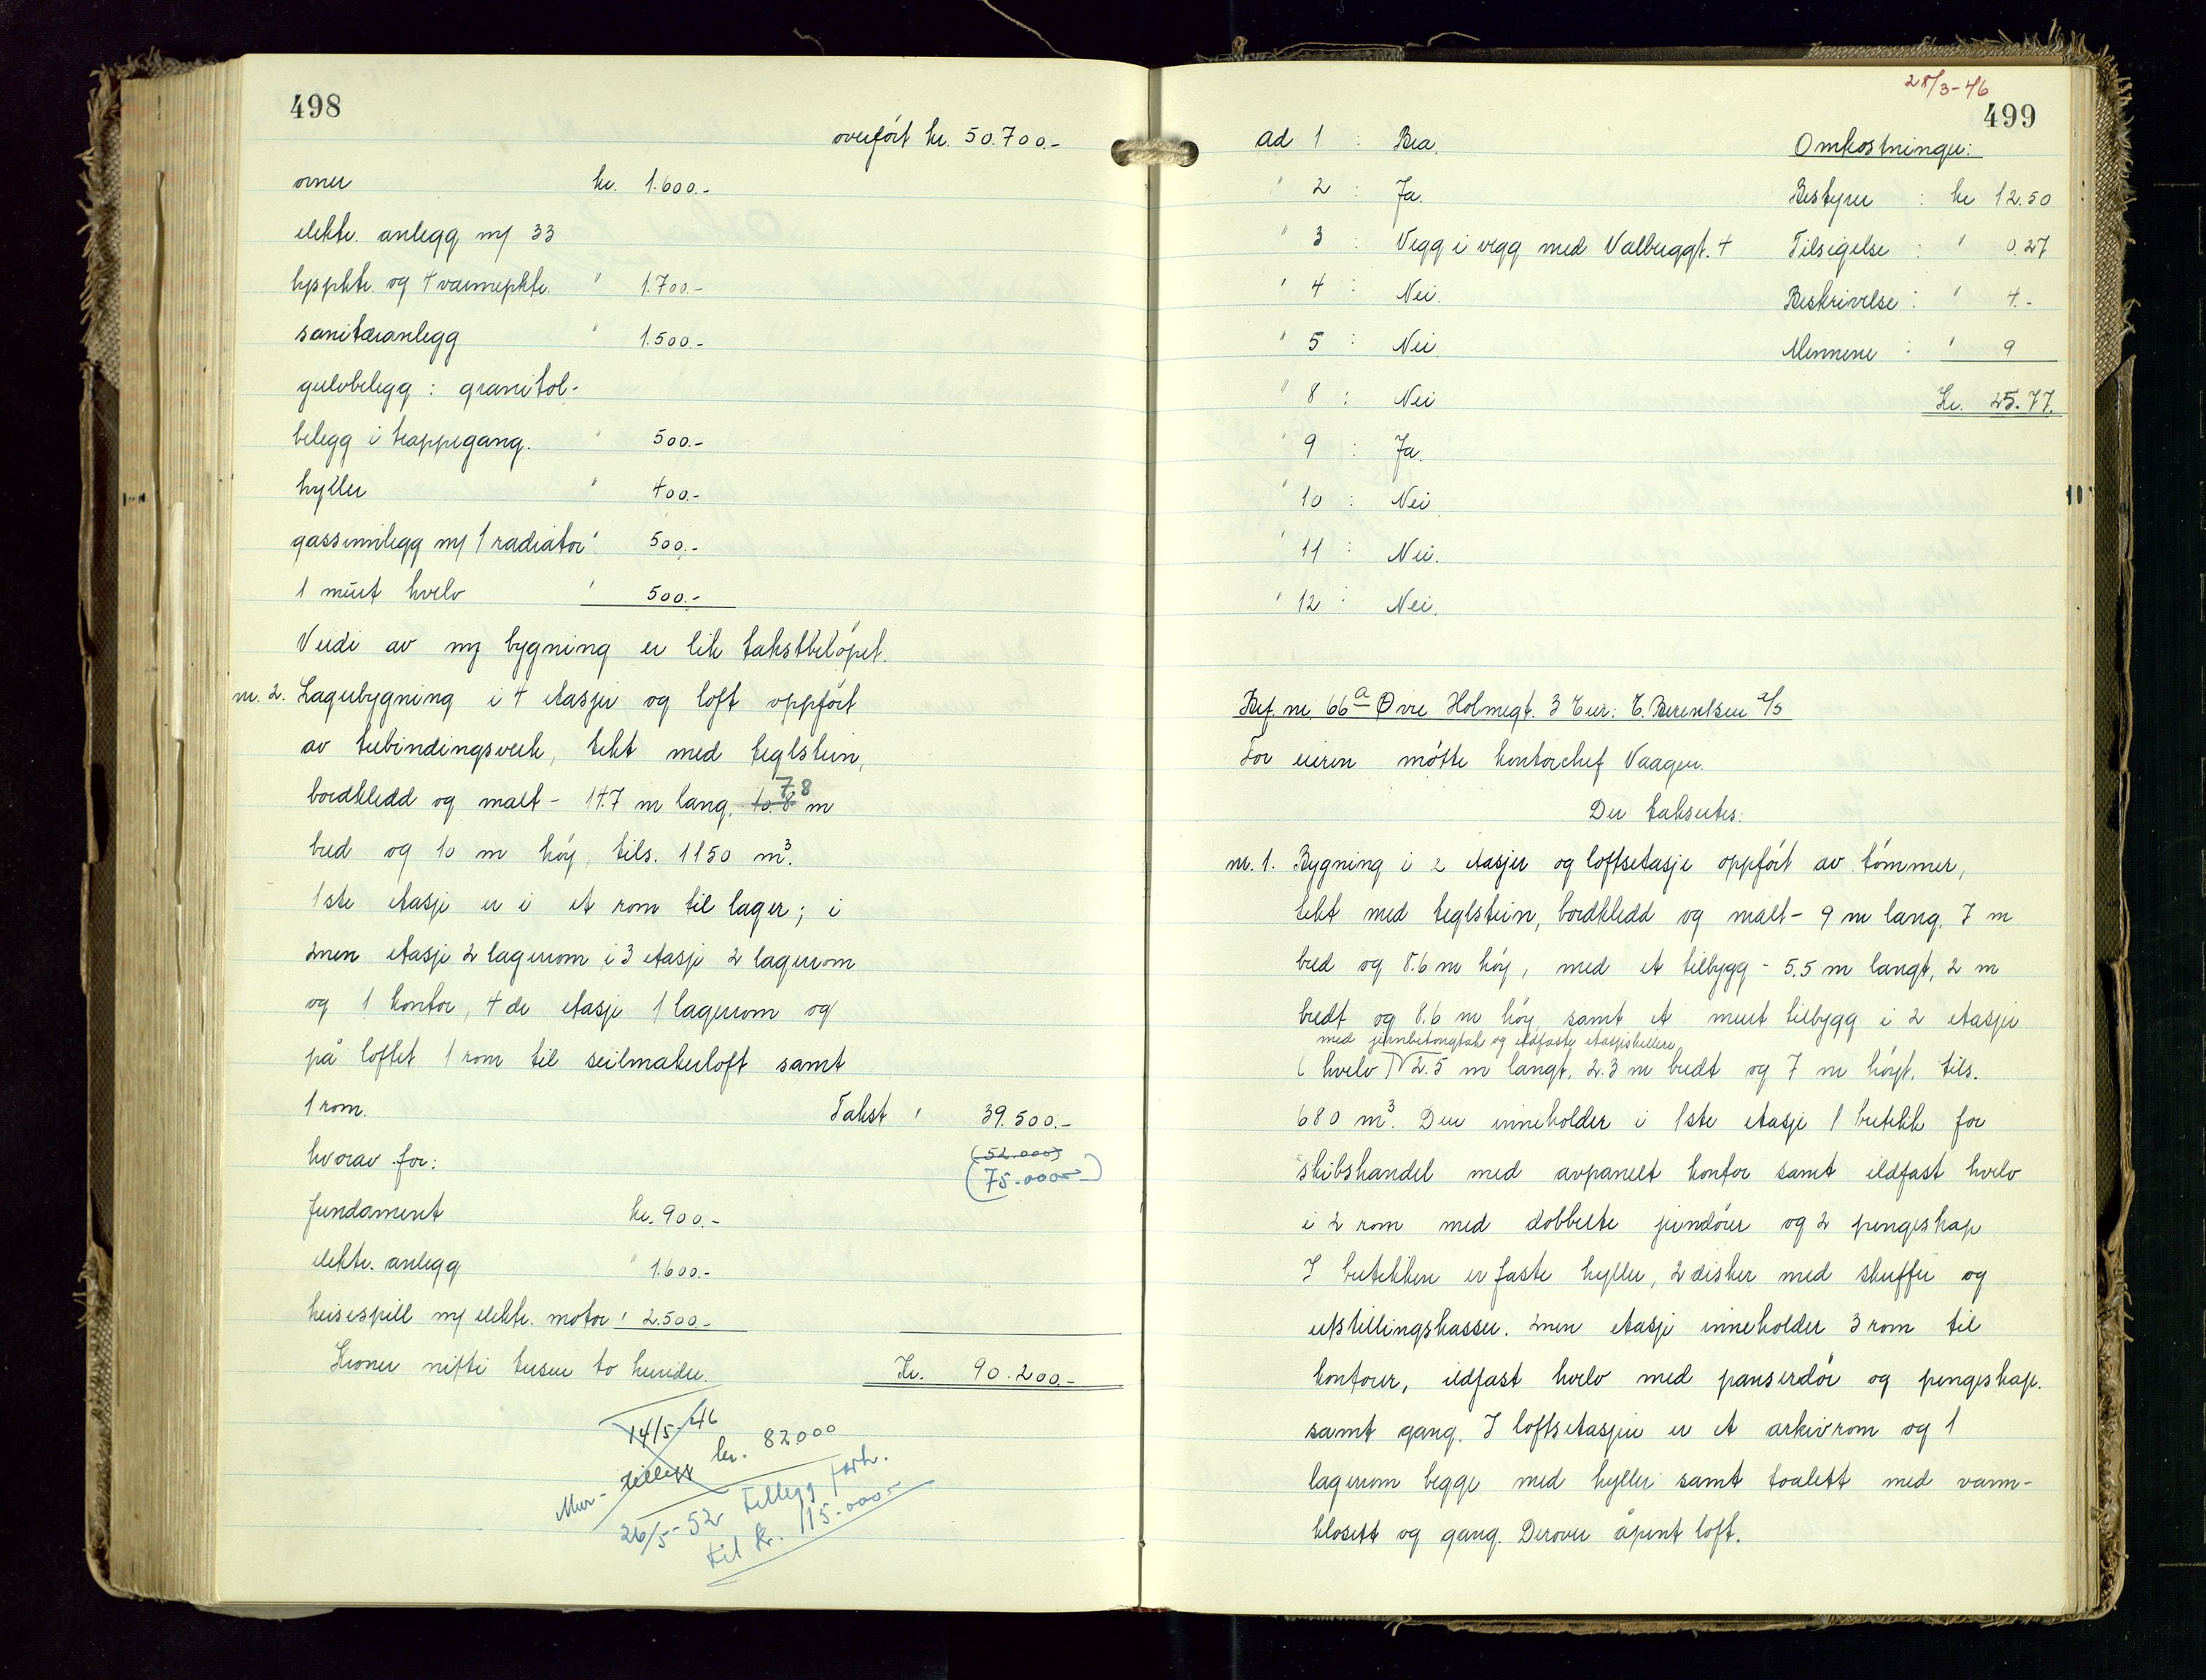 498
overført kr. 50.700.-
ovner kr. 1.600.-
elektr. anlegg m/ 33
lyspkte. og 4 varmepkte. " 1.700.-
sanitæranlegg " 1.500.-
gulvbelegg: granitol-
belegg i trappegang. " 500.-
hyller " 400.-
gassinnlegg m/ 1 radiator " 500.-
1 murt hvelv " 500.-
Verdi av ny bygning er lik takstbeløpet.
nr. 2. Lagerbygning i 4 etasjer og loft oppført
av trebindingsverk, tekt med teglstein,
bordkledd og malt - 14.7 m lang, 10.8 7.8 m
bred og 10 m høy, tils. 1150 m³.
1ste etasje er i et rom til lager; i
2nen etasje 2 lagerrom, i 3 etasje 2 lagerrom
og 1 kontor, 4de etasje 1 lagerrom og
på loftet 1 rom til seilmakerloft samt
1 rom. Takst " 39.500.-
hvorav for: (52.000)
(75.000.-)
fundament kr. 900.-
elektr. anlegg " 1.600.-
heisespill m/ elektr. motor " 2.500.-
Kroner nitti tusen to hundre. Kr. 90.200.-
14/5-46
Mur- tillegg kr. 82000
26/5-52 Tillegg forh.
til kr. 115.000.-
28/3-46
499
ad 1 : Bra. Omkostninger:
" 2 : Ja. Bestyrer : kr 12.50
" 3 : Vegg i vegg med Valbergt. 4 Tilsigelse : " 0.27
" 4 : Nei. Beskrivelse : " 4.-
" 5 : Nei. Mennene : " 9
" 8 : Nei Kr. 25.77.
" 9 : Ja.
" 10 : Nei
" 11 : Nei.
" 12 : Nei.
Bref. nr. 66a Øvre Holmegt. 3 Eier: E. Berentsen a/s
For eieren møtte kontorchef Vaagen.
Der takseres:
nr. 1. Bygning i 2 etasjer og loftsetasje oppført av tømmer,
tekt med teglstein, bordkledd og malt - 9 m lang, 7 m
bred og 8.6 m høy, med et tilbygg - 5.5 m langt, 2 m
bredt og 8.6 m høy samt et murt tilbygg i 2 etasjer
med jernbetongtak og ildfaste etasjeskillere
(hvelv) 2.5 m langt, 2.3 m bredt og 7 m høyt, tils.
680 m³. Den inneholder i 1ste etasje 1 butikk for
skibshandel med avpanelt kontor samt ildfast hvelv
i 2 rom med dobbelte jerndører og 2 pengeskap
I butikken er faste hyller, 2 disker med skuffer og
utstillingskasser. 2nen etasje inneholder 3 rom til
kontorer, ildfast hvelv med panserdør og pengeskap.
samt gang. I loftsetasjen er et arkivrom og 1
lagerrom begge med hyller samt toalett med vann-
klosett og gang. Derover åpent loft.